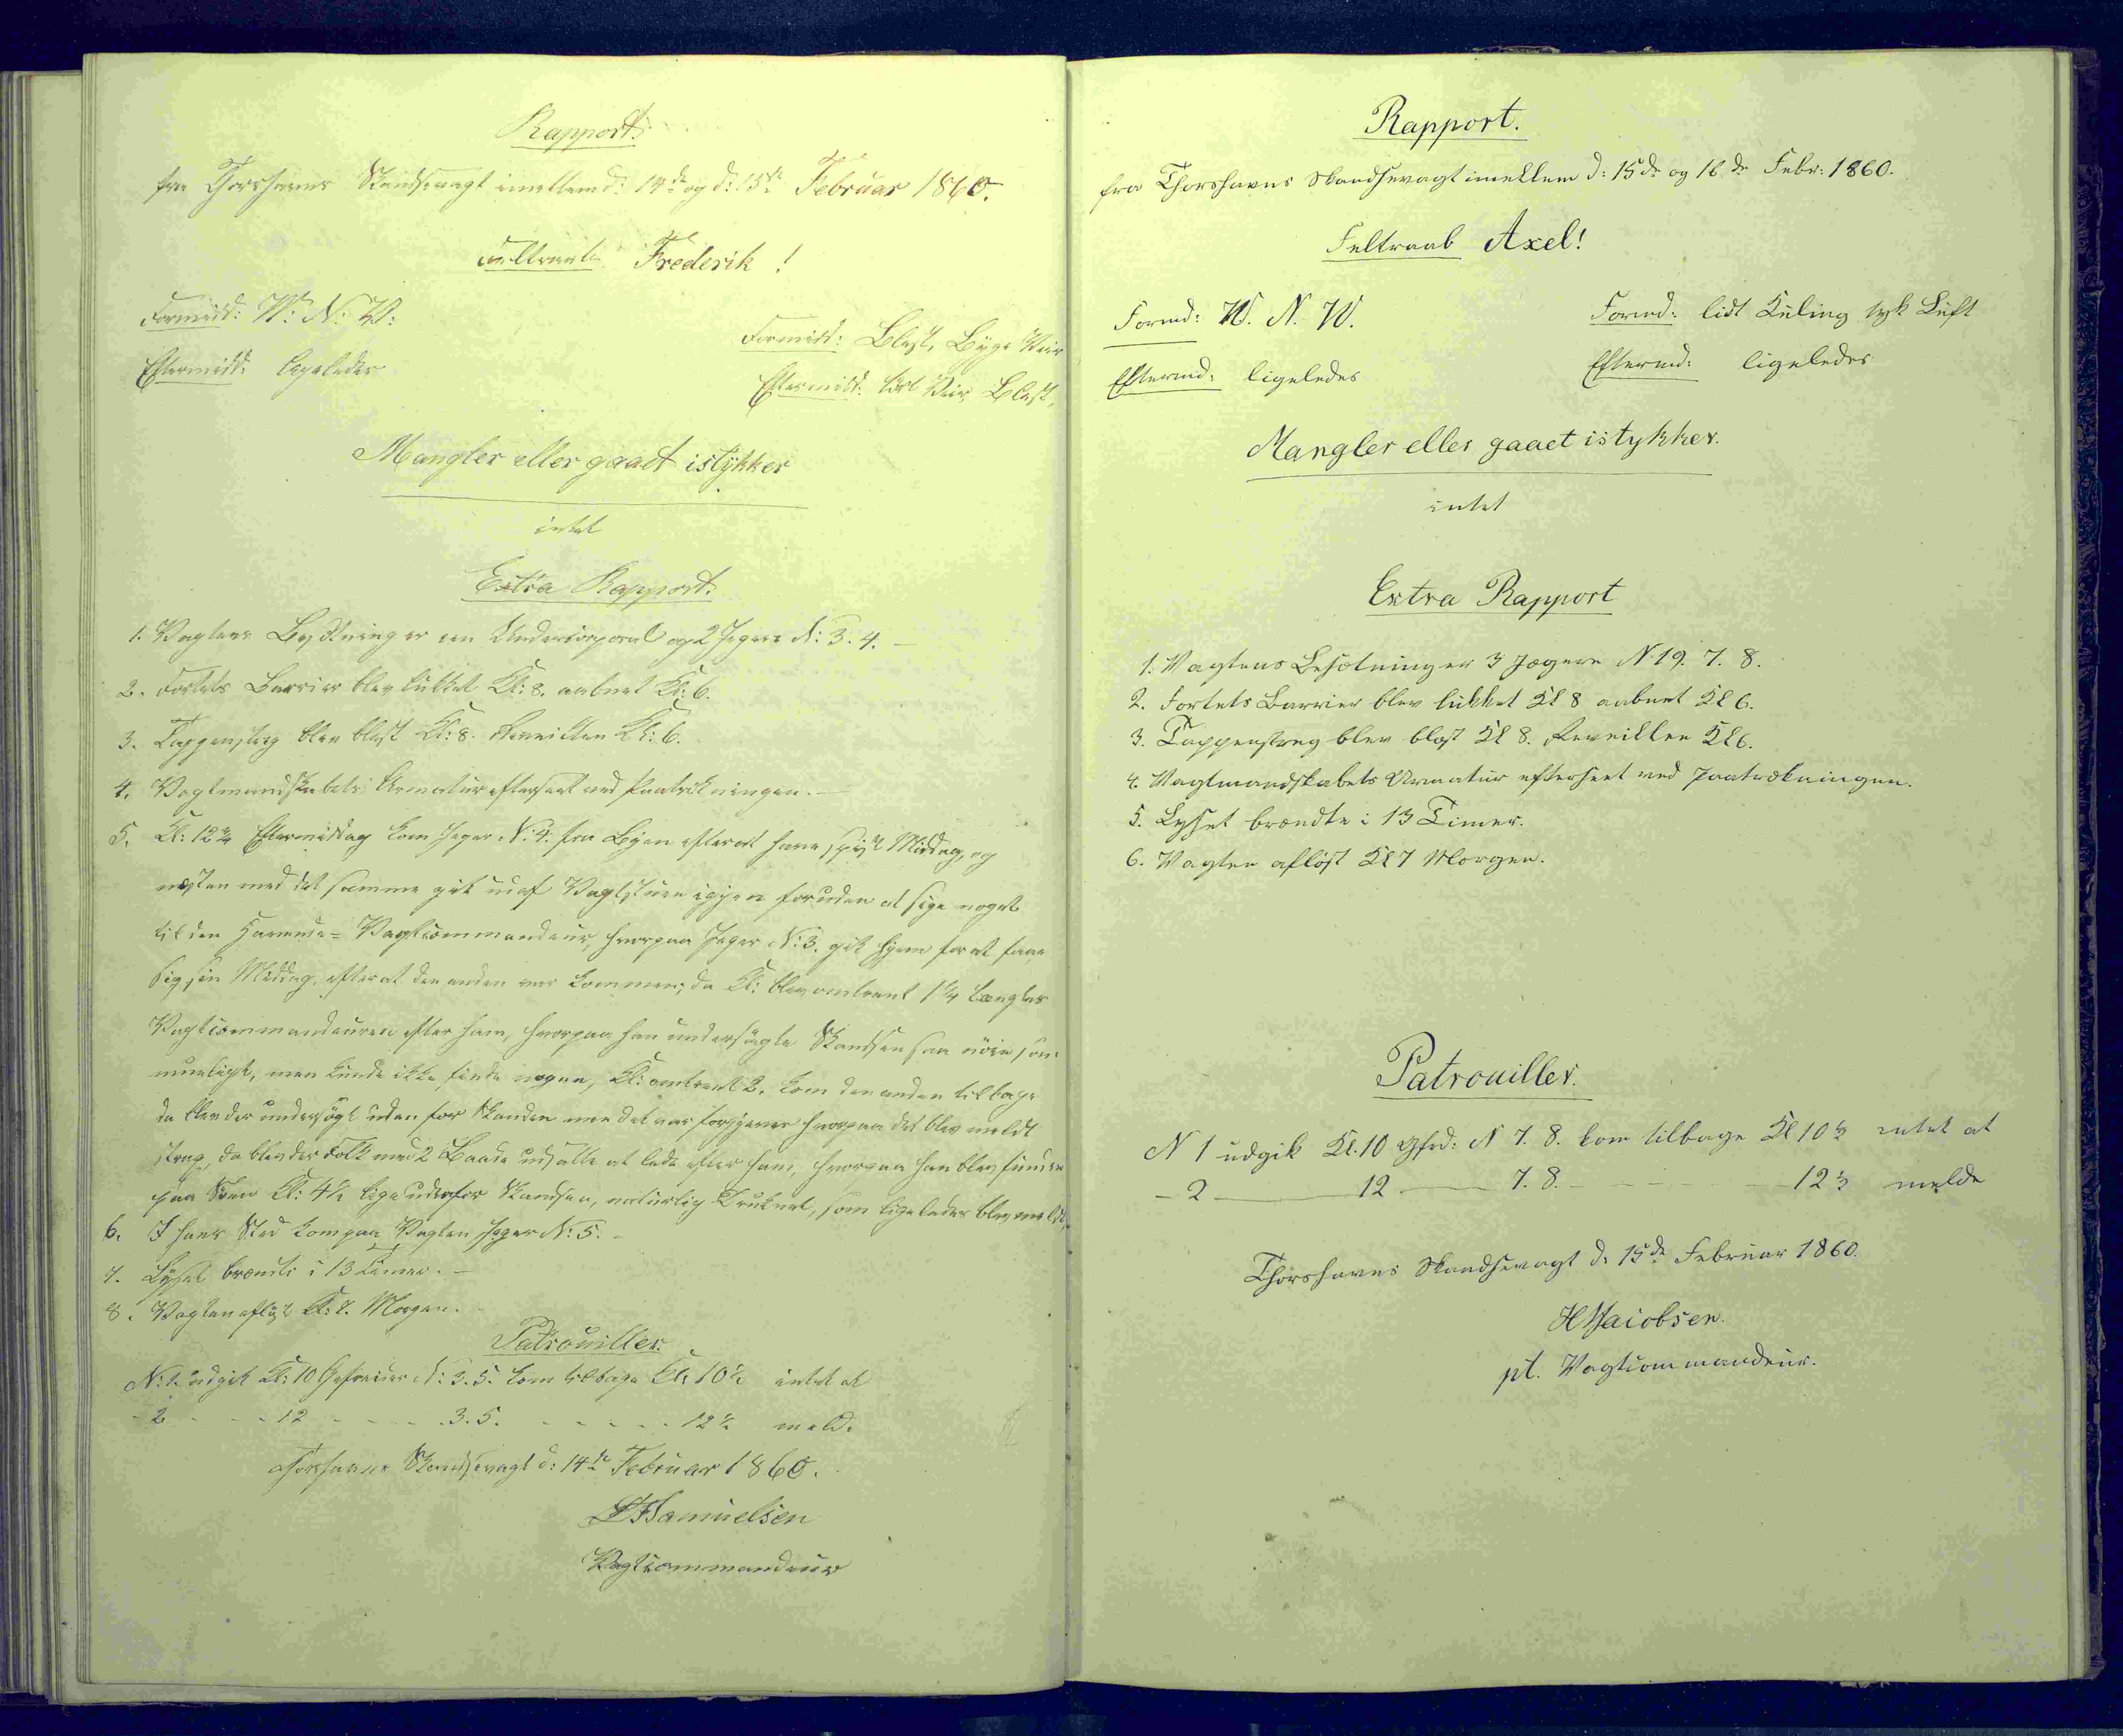 Rapport.
fra Thorshavns Skandsevagt imellem d: 14de og d: 15de Februar 1860.
Feltraab Frederik !
Formidd: W: N: W:
Formidd: Blæst, Byge Veir
Eftermidd: ligeledes
Eftermidd: Veir, Blæst,
Mangler eller gaaet istykker
intet
Extra Rapport.
1. Vagtens Besætning er een Undercorporal og 2 Jegere N: 3. 4. —
2. Fortets Barrier blev lukket Kl: 8. aabnet Kl: 6.
3. Tappenstreg blev blæst Kl: 8. Reveillen Kl: 6.
4. Vagtmandskabets Armatur efterseet ved Paatrækningen. —
5. Kl: 12¾ Eftermiddag kom Jeger N: 4. fra Byen efterat have spiist Middag, og
næsten med det samme gik ud af Vagtstuen igjen foruden at sige noget
til den Vagtcommandeur, hvorpaa Jeger N: 3. gik hjem for at faae
sig sin Middag, efterat den anden var kommen; da Kl: blev omtrent 1¼ længtes
Vagtcommandeuren efter ham, hvorpaa han undersøgte Skandsen saa nøie som
mueligt, men kunde ikke finde nogen, Kl: omtrent 2. kom den anden tilbage
da blev der undersøgt uden for Skandsen men det var forgjeves hvorpaa det blev meldt
strax, da blev der Folk med 2 Baade udsatte at lede efter ham, hvorpaa han blev funden
paa Søen Kl: 4½ lige udenfor Skandsen, naturlig Druknet, som ligeledes blev meldt,
6. I hans Sted kom paa Vagten Jeger N: 5. —
7. Lyset brændte i 13 Timer. —
8. Vagten afløst Kl: 7. Morgen.
Patrouiller.
N: 1. udgik Kl: 10 Gefreider N: 3. 5. kom tilbage Kl: 10½ intet at
- 2 - - - 12 - - - - 3. 5. - - - - - - 12½ melde
Thorshavns Skandsevagt d: 14de Februar 1860.
Samuelsen
Vagtcommandeur
Rapport.
fra Thorshavns Skandsevagt imellem d: 15de og 16de Febr: 1860.
Feltraab Axel!
Formd: W. N. W.
Formd: lidt Kuling tyk Luft
Eftermd: ligeledes
Eftermd: ligeledes
Mangler eller gaaet istykker.
intet
Extra Rapport
1. Vagtens Besætning er 3 Jægere N 19. 7. 8.
2. Fortets Barrier blev lukket Kl 8 aabnet Kl 6.
3. Tappenstreg blev blæst Kl 8. Reveillen Kl 6.
4. Vagtmandskabets Armatur efterseet ved Paatrækningen.
5. Lyset brændte i 13 Timer.
6. Vagten afløst Kl 7 Morgen.
Patrouiller.
N 1 udgik Kl. 10 Gfrd: N 7. 8. kom tilbage Kl 10½ intet at
- 2 — 12 — 7. 8. - - - - - 12½ melde
Thorshavns Skandsevagt d: 15de Februar 1860.
H Jacobsen.
pt. Vagtcommandeur.